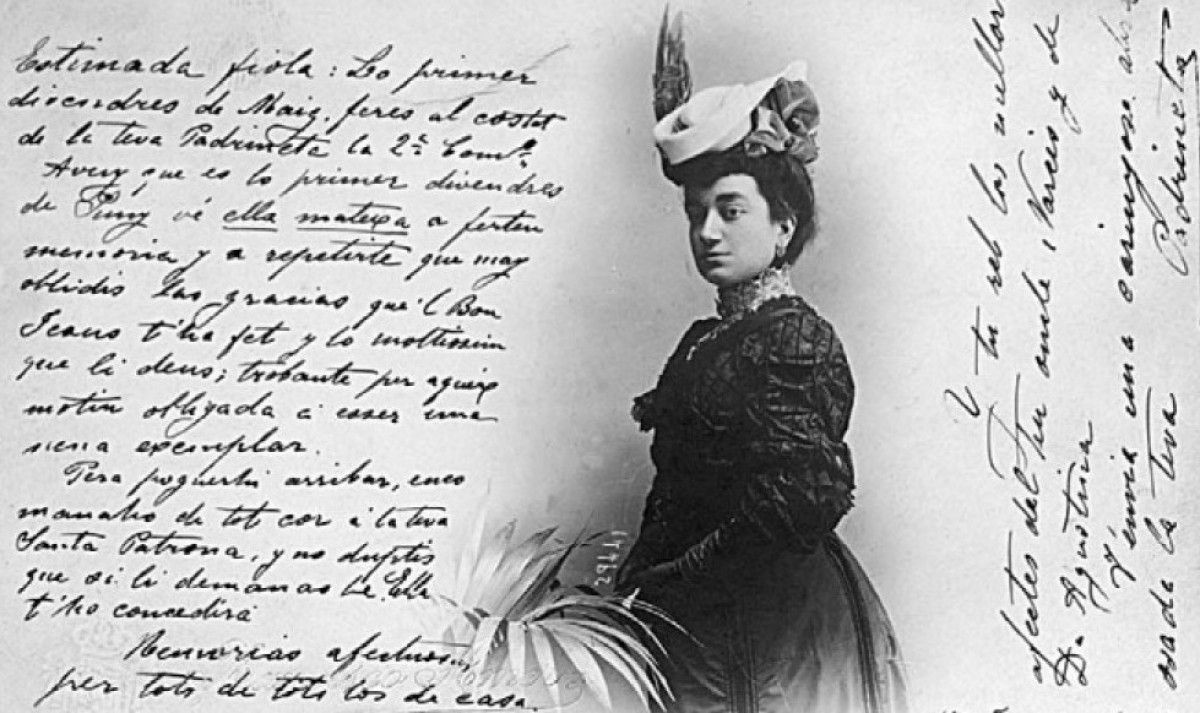 Estimada fiola: Lo primer
divendres de Maig, feres al costat
de la teva Padrineta la 2ª Comº.
Avuy que es lo primer divendres
de Juny vé ella mateixa a ferten
memoria y a repetirte que may
oblidis las gracias que'l Bon
Jesus t'ha fet y lo moltissim
que li deus; trobante per aqueix
motiu obligada á esser una
nena exemplar.
Pera poguerhi arribar, enco
manaho de tot cor á la teva
Santa Patrona, y no duptis
que si li demanas be, Ella
t'ho concedirá
Memorias afectuosas
per tots de tots los de casa.
Y tu reb los mellors
afectes del teu oncle Narcís y de
Dª Agustina
Y envia una carinyosa abra
sada la teva
Padrineta
29221